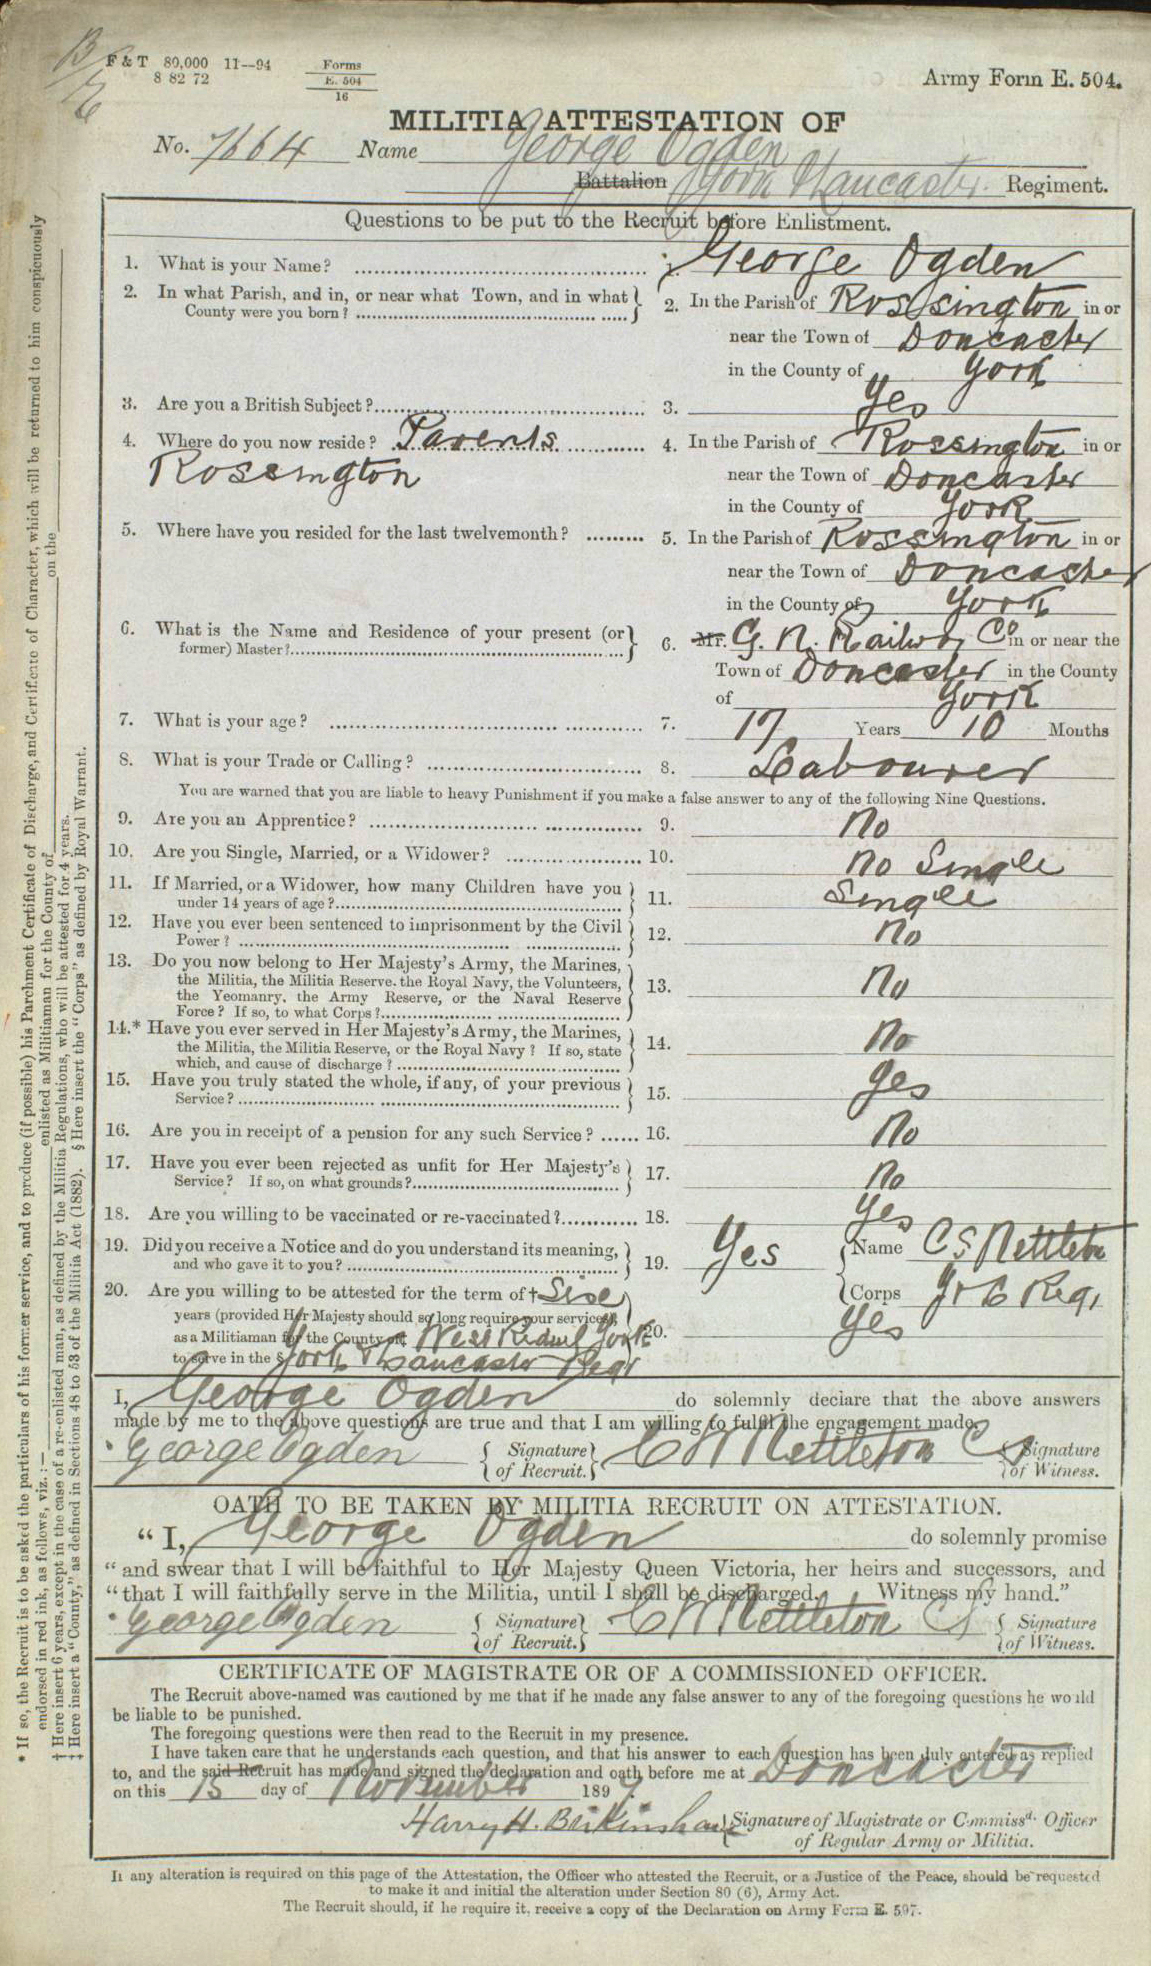 B/6
F & T 80,000 11—94 Forms
8 82 72 E. 504
16
Army Form E. 504.
MILITIA ATTESTATION OF
No. 7664 Name George Ogden
Battalion York & Lancaster Regiment.
Questions to be put to the Recruit before Enlistment.
1. What is your Name? 1. George Ogden
2. In what Parish, and in, or near what Town, and in what County were you born? 2. In the Parish of Rossington in or
near the Town of Doncaster
in the County of York
3. Are you a British Subject? 3. Yes
4. Where do you now reside? Parents 4. In the Parish of Rossington in or
Rossington near the Town of Doncaster
in the County of York
5. Where have you resided for the last twelvemonth? 5. In the Parish of Rossington in or
near the Town of Doncaster
in the County of York
6. What is the Name and Residence of your present (or former) Master? 6. Mr. G. N. Railway Co in or near the
Town of Doncaster in the County
of York
7. What is your age? 7. 17 Years 10 Months
8. What is your Trade or Calling? 8. Labourer
You are warned that you are liable to heavy Punishment if you make a false answer to any of the following Nine Questions.
9. Are you an Apprentice? 9. No
10. Are you Single, Married, or a Widower? 10. No Single
11. If Married, or a Widower, how many Children have you
under 14 years of age? 11. Single
12. Have you ever been sentenced to imprisonment by the Civil
Power? 12. No
13. Do you now belong to Her Majesty's Army, the Marines,
the Militia, the Militia Reserve, the Royal Navy, the Volunteers,
the Yeomanry, the Army Reserve, or the Naval Reserve
Force? If so, to what Corps? 13. No
14.* Have you ever served in Her Majesty's Army, the Marines,
the Militia, the Militia Reserve, or the Royal Navy? If so, state
which, and cause of discharge? 14. No
15. Have you truly stated the whole, if any, of your previous
Service? 15. Yes
16. Are you in receipt of a pension for any such Service? 16. No
17. Have you ever been rejected as unfit for Her Majesty's
Service? If so, on what grounds? 17. No
18. Are you willing to be vaccinated or re-vaccinated? 18. Yes
19. Did you receive a Notice and do you understand its meaning,
and who gave it to you? 19. Yes Name C S Nettleton
Corps Y & L Reg,
20. Are you willing to be attested for the term of † Six
years (provided Her Majesty should so long require your services)
as a Militiaman for the County of ‡ West Riding York 20. Yes
to serve in the § York & Lancaster Regt
I, George Ogden do solemnly declare that the above answers
made by me to the above questions are true and that I am willing to fulfil the engagement made.
George Ogden Signature of Recruit. C W Nettleton C S Signature of Witness.
OATH TO BE TAKEN BY MILITIA RECRUIT ON ATTESTATION.
"I, George Ogden do solemnly promise
"and swear that I will be faithful to Her Majesty Queen Victoria, her heirs and successors, and
"that I will faithfully serve in the Militia, until I shall be discharged. Witness my hand."
George Ogden Signature of Recruit. C W Nettleton C S Signature of Witness.
CERTIFICATE OF MAGISTRATE OR OF A COMMISSIONED OFFICER.
The Recruit above-named was cautioned by me that if he made any false answer to any of the foregoing questions he would
be liable to be punished.
The foregoing questions were then read to the Recruit in my presence.
I have taken care that he understands each question, and that his answer to each question has been duly entered as replied
to, and the said Recruit has made and signed the declaration and oath before me at Doncaster
on this 15 day of November 1897.
Harry H. Birkinshaw Signature of Magistrate or Commissd. Officer
of Regular Army or Militia.
If any alteration is required on this page of the Attestation, the Officer who attested the Recruit, or a Justice of the Peace, should be requested
to make it and initial the alteration under Section 80 (6), Army Act.
The Recruit should, if he require it, receive a copy of the Declaration on Army Form E. 507.
* If so, the Recruit is to be asked the particulars of his former service, and to produce (if possible) his Parchment Certificate of Discharge, and Certificate of Character, which will be returned to him conspicuously
endorsed in red ink, as follows, viz.:— enlisted as Militiaman for the County of on the
† Here insert 6 years, except in the case of a re-enlisted man, as defined by the Militia Regulations, who will be attested for 4 years.
‡ Here insert a "County," as defined in Sections 48 to 53 of the Militia Act (1882). § Here insert the "Corps" as defined by Royal Warrant.